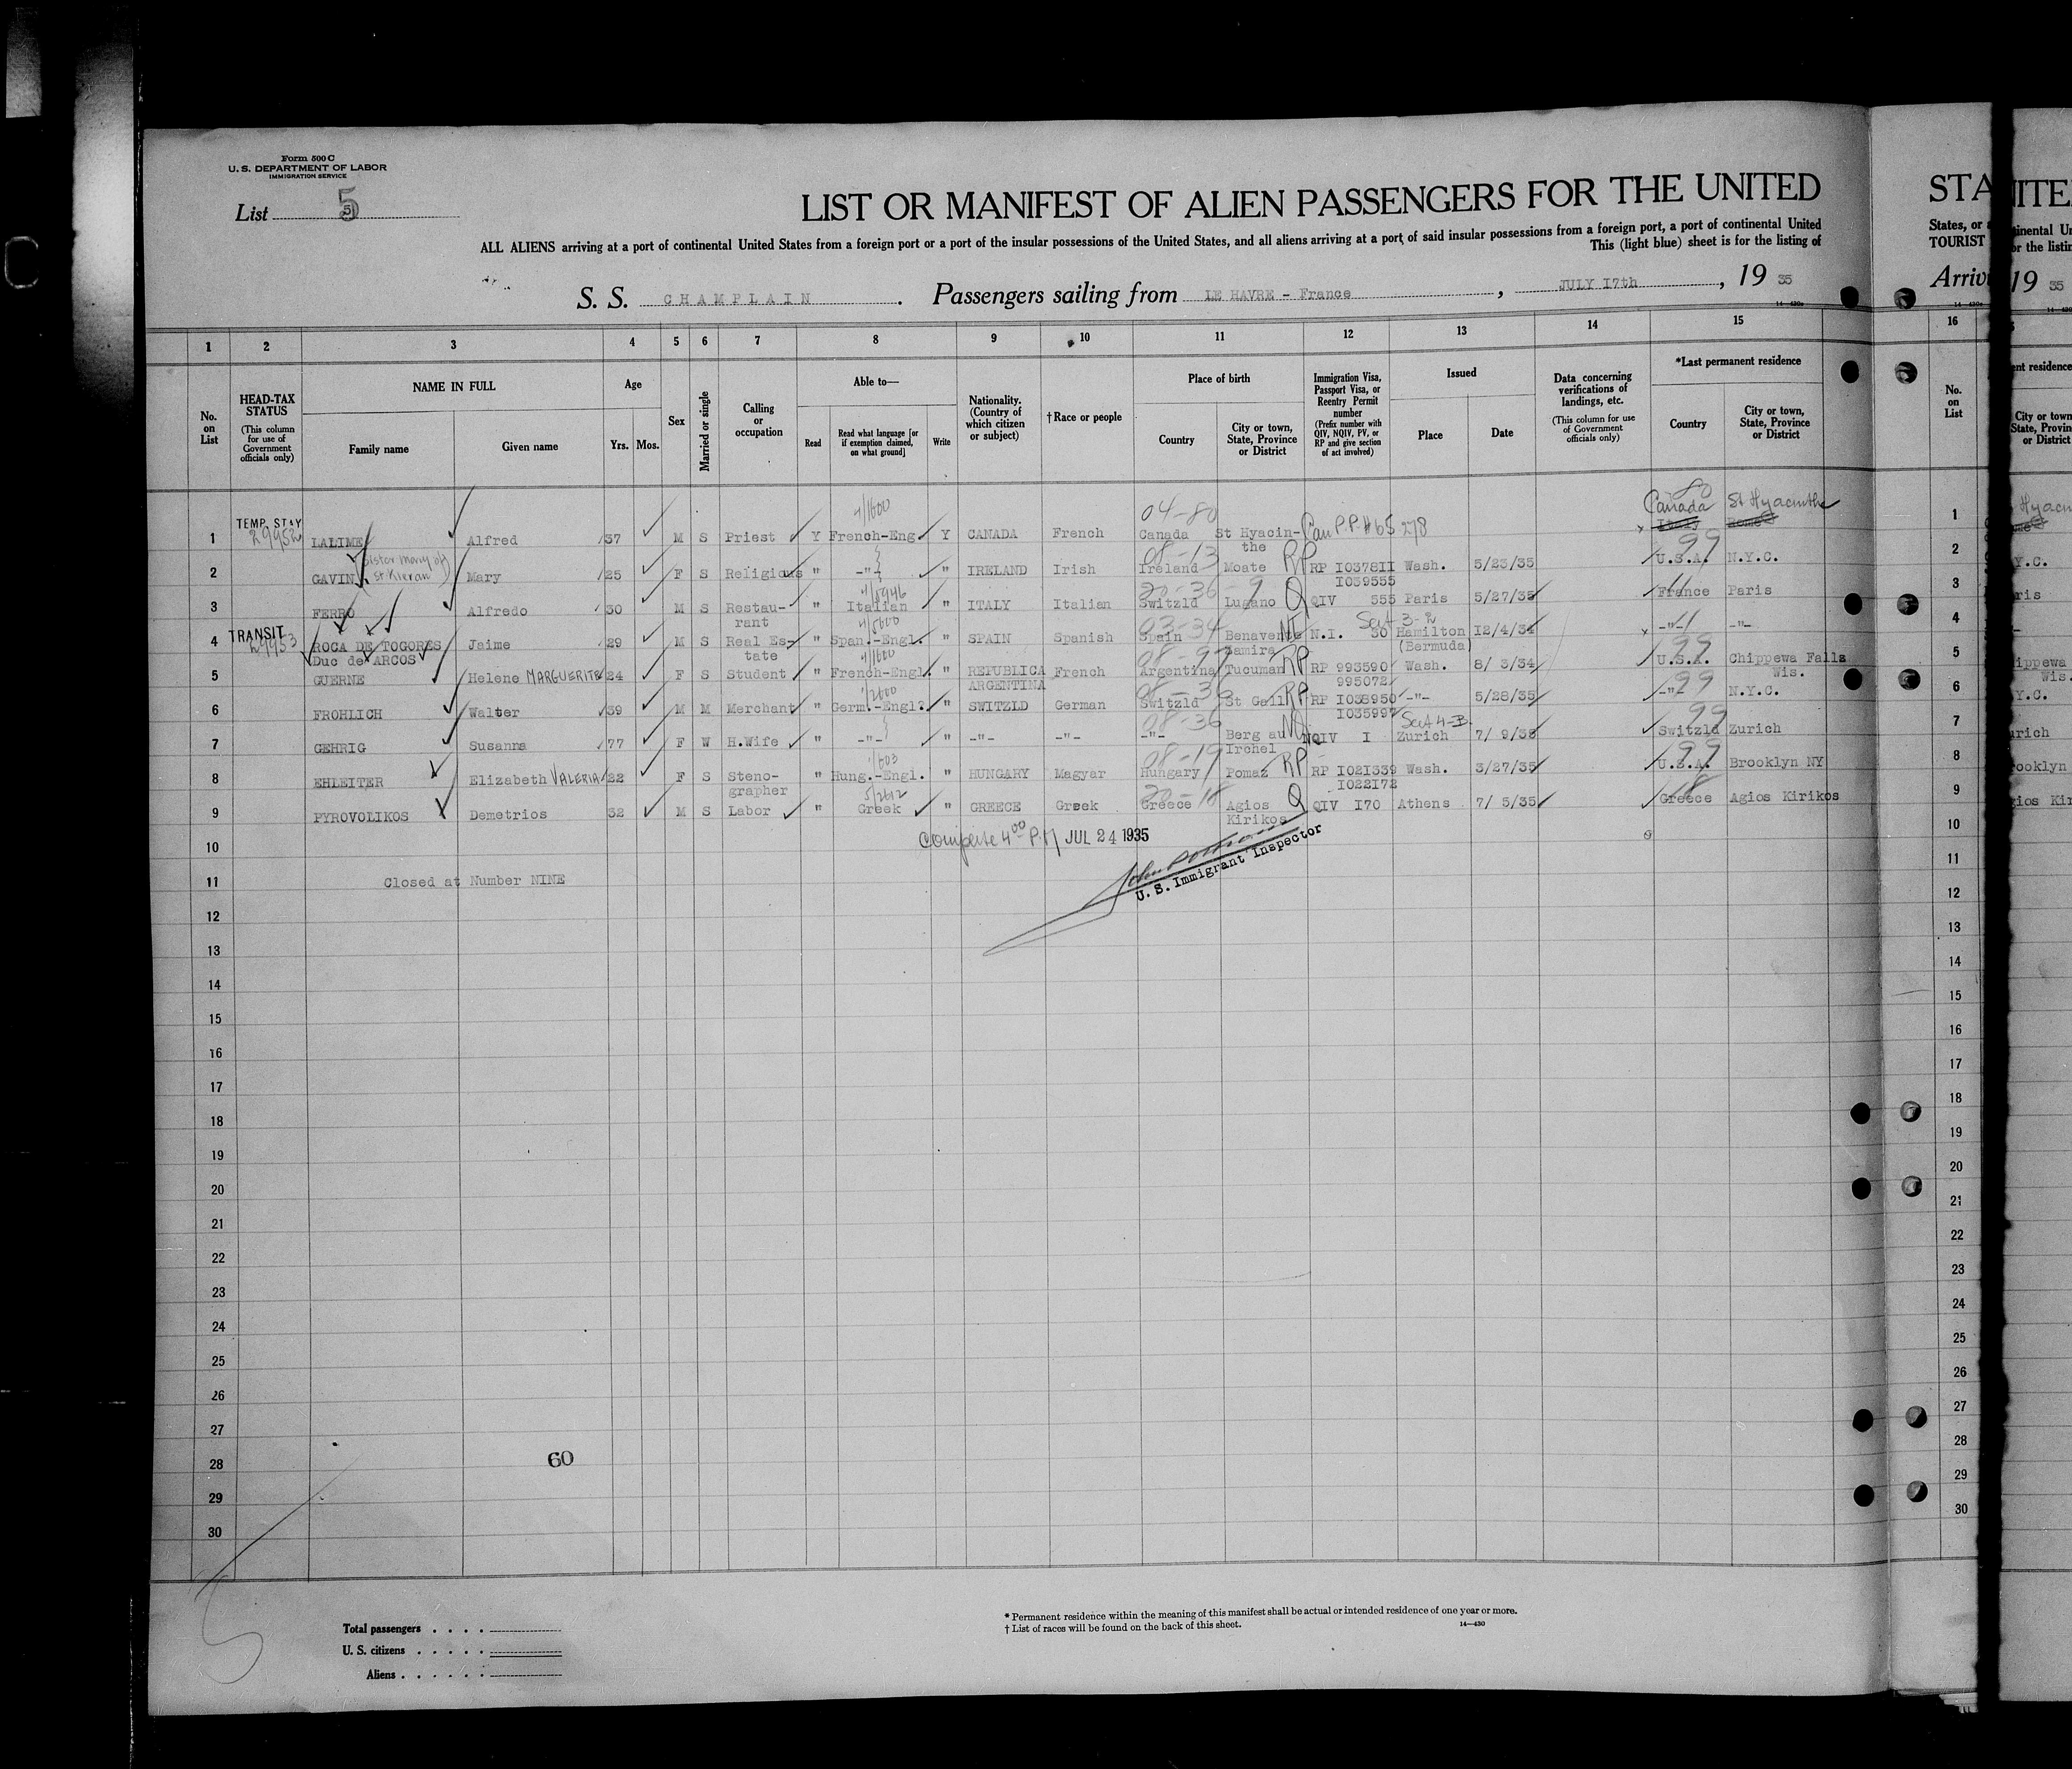 Form 500 C
U. S. DEPARTMENT OF LABOR
IMMIGRATION SERVICE
List 5
LIST OR MANIFEST OF ALIEN PASSENGERS FOR THE UNITED
ALL ALIENS arriving at a port of continental United States from a foreign port or a port of the insular possessions of the United States, and all aliens arriving at a port of said insular possessions from a foreign port, a port of continental United
This (light blue) sheet is for the listing of
S. S. CHAMPLAIN. Passengers sailing from LE HAVRE - France, JULY 17th, 19 35
1 2 3 4 5 6 7 8 9 10 11 12 13 14 15
No. on List
HEAD-TAX STATUS
(This column for use of Government officials only)
NAME IN FULL
Family name Given name
Age
Yrs. Mos.
Sex
Married or single
Calling or occupation
Able to—
Read
Read what language [or if exemption claimed, on what ground]
Write
Nationality. (Country of which citizen or subject)
†Race or people
Place of birth
Country
City or town, State, Province or District
Immigration Visa, Passport Visa, or Reentry Permit number
(Prefix number with QIV, NQIV, PV, or RP and give section of act involved)
Issued
Place Date
Data concerning verifications of landings, etc.
(This column for use of Government officials only)
*Last permanent residence
Country
City or town, State, Province or District
4/1600 04-80 Canada St Hyacinthe
1 TEMP. STAY 29952 LALIME Alfred 37 M S Priest Y French-Eng. Y CANADA French Canada St Hyacinthe Can P.P. #65278 Italy Rome
Sister Mary of St Kieran 08-13 99
2 GAVIN Mary 25 F S Religious " -"- " IRELAND Irish Ireland Moate RP RP I0378II Wash. 5/23/35 U.S.A. N.Y.C.
I039555
3 FERRO Alfredo 30 M S Restaurant " Italian " ITALY Italian Switzld Lugano Q QIV 555 Paris 5/27/35 France Paris
4 TRANSIT 29953 ROCA DE TOGORES Jaime 29 M S Real Estate " Span.-Engl. " SPAIN Spanish Spain Benavente NI N.I. 30 Sect 3-2 Hamilton I2/4/34 -"- -"-
Duc de ARCOS Samira (Bermuda)
5 GUERNE Helene MARGUERITE 24 F S Student " French-Engl. " REPUBLICA ARGENTINA French Argentina Tucuman RP RP 993590 Wash. 8/ 3/34 U.S.A. Chippewa Falls Wis.
995072
6 FROHLICH Walter 39 M M Merchant " Germ.-Engl. " SWITZLD German Switzld St Gall RP RP I038950 -"- 5/28/35 -"- N.Y.C.
I035997
7 GEHRIG Susanna 77 F W H.Wife " -"- " -"- -"- -"- Berg au Irchel NQ NQIV I Sect 4-B Zurich 7/ 9/35 Switzld Zurich
8 EHLEITER Elizabeth VALERIA 22 F S Stenographer " Hung.-Engl. " HUNGARY Magyar Hungary Pomaz RP RP I021339 Wash. 3/27/35 U.S.A. Brooklyn NY
I022I72
9 PYROVOLIKOS Demetrios 32 M S Labor " Greek " GREECE Greek Greece Agios Kirikos Q QIV I70 Athens 7/ 5/35 Greece Agios Kirikos
10 Complete 4 00 P.M JUL 24 1935
11 Closed at Number NINE
U. S. Immigrant Inspector
12
13
14
15
16
17
18
19
20
21
22
23
24
25
26
27
28 60
29
30
Total passengers
U. S. citizens
Aliens
* Permanent residence within the meaning of this manifest shall be actual or intended residence of one year or more.
† List of races will be found on the back of this sheet.
14—430
STA
States, or
TOURIST
Arriv
16
No. on List
1
2
3
4
5
6
7
8
9
10
11
12
13
14
15
16
17
18
19
20
21
22
23
24
25
26
27
28
29
30